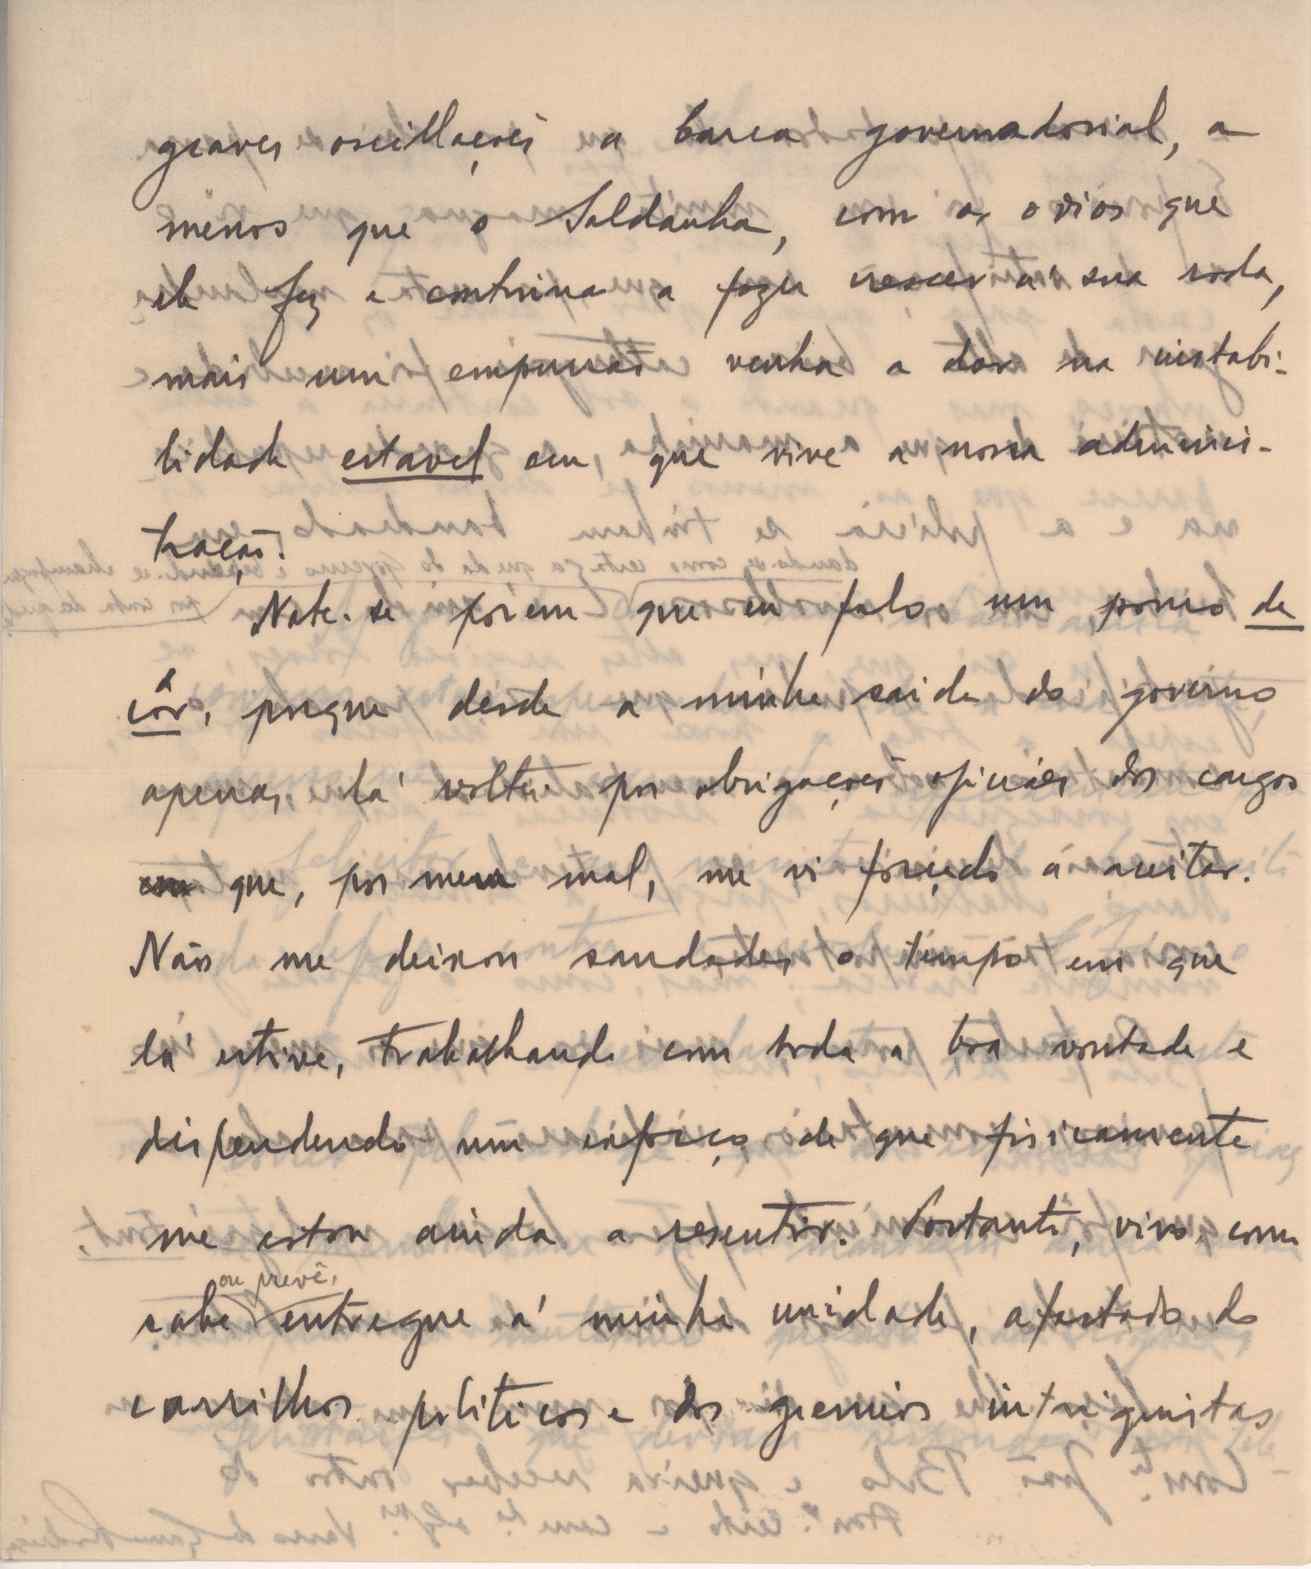 graves oscillações a barca governadorial, a
menos que o Saldanha, com os odios que
ele fez e continua a fazer crescer á sua roda,
mais um empurrão venha a dar na instabi-
lidade estavel em que vive a nossa adminis-
tração.
Note-se porem que eu falo um pouco de
côr, porque desde a minha saida do governo
apenas lá voltei por obrigações oficiáes dos cargos
em que, por meu mal, me vi forçado a aceitar.
Não me deixou saudades o tempo em que
lá estive, trabalhando com toda a boa vontade e
dispendendo um esforço de que fisicamente
me estou ainda a resentir. Portanto, vivo, como
ou prevê,
sabe entregue á minha unidade, afastado do
carrilhos politicos e dos gremios intriguistas